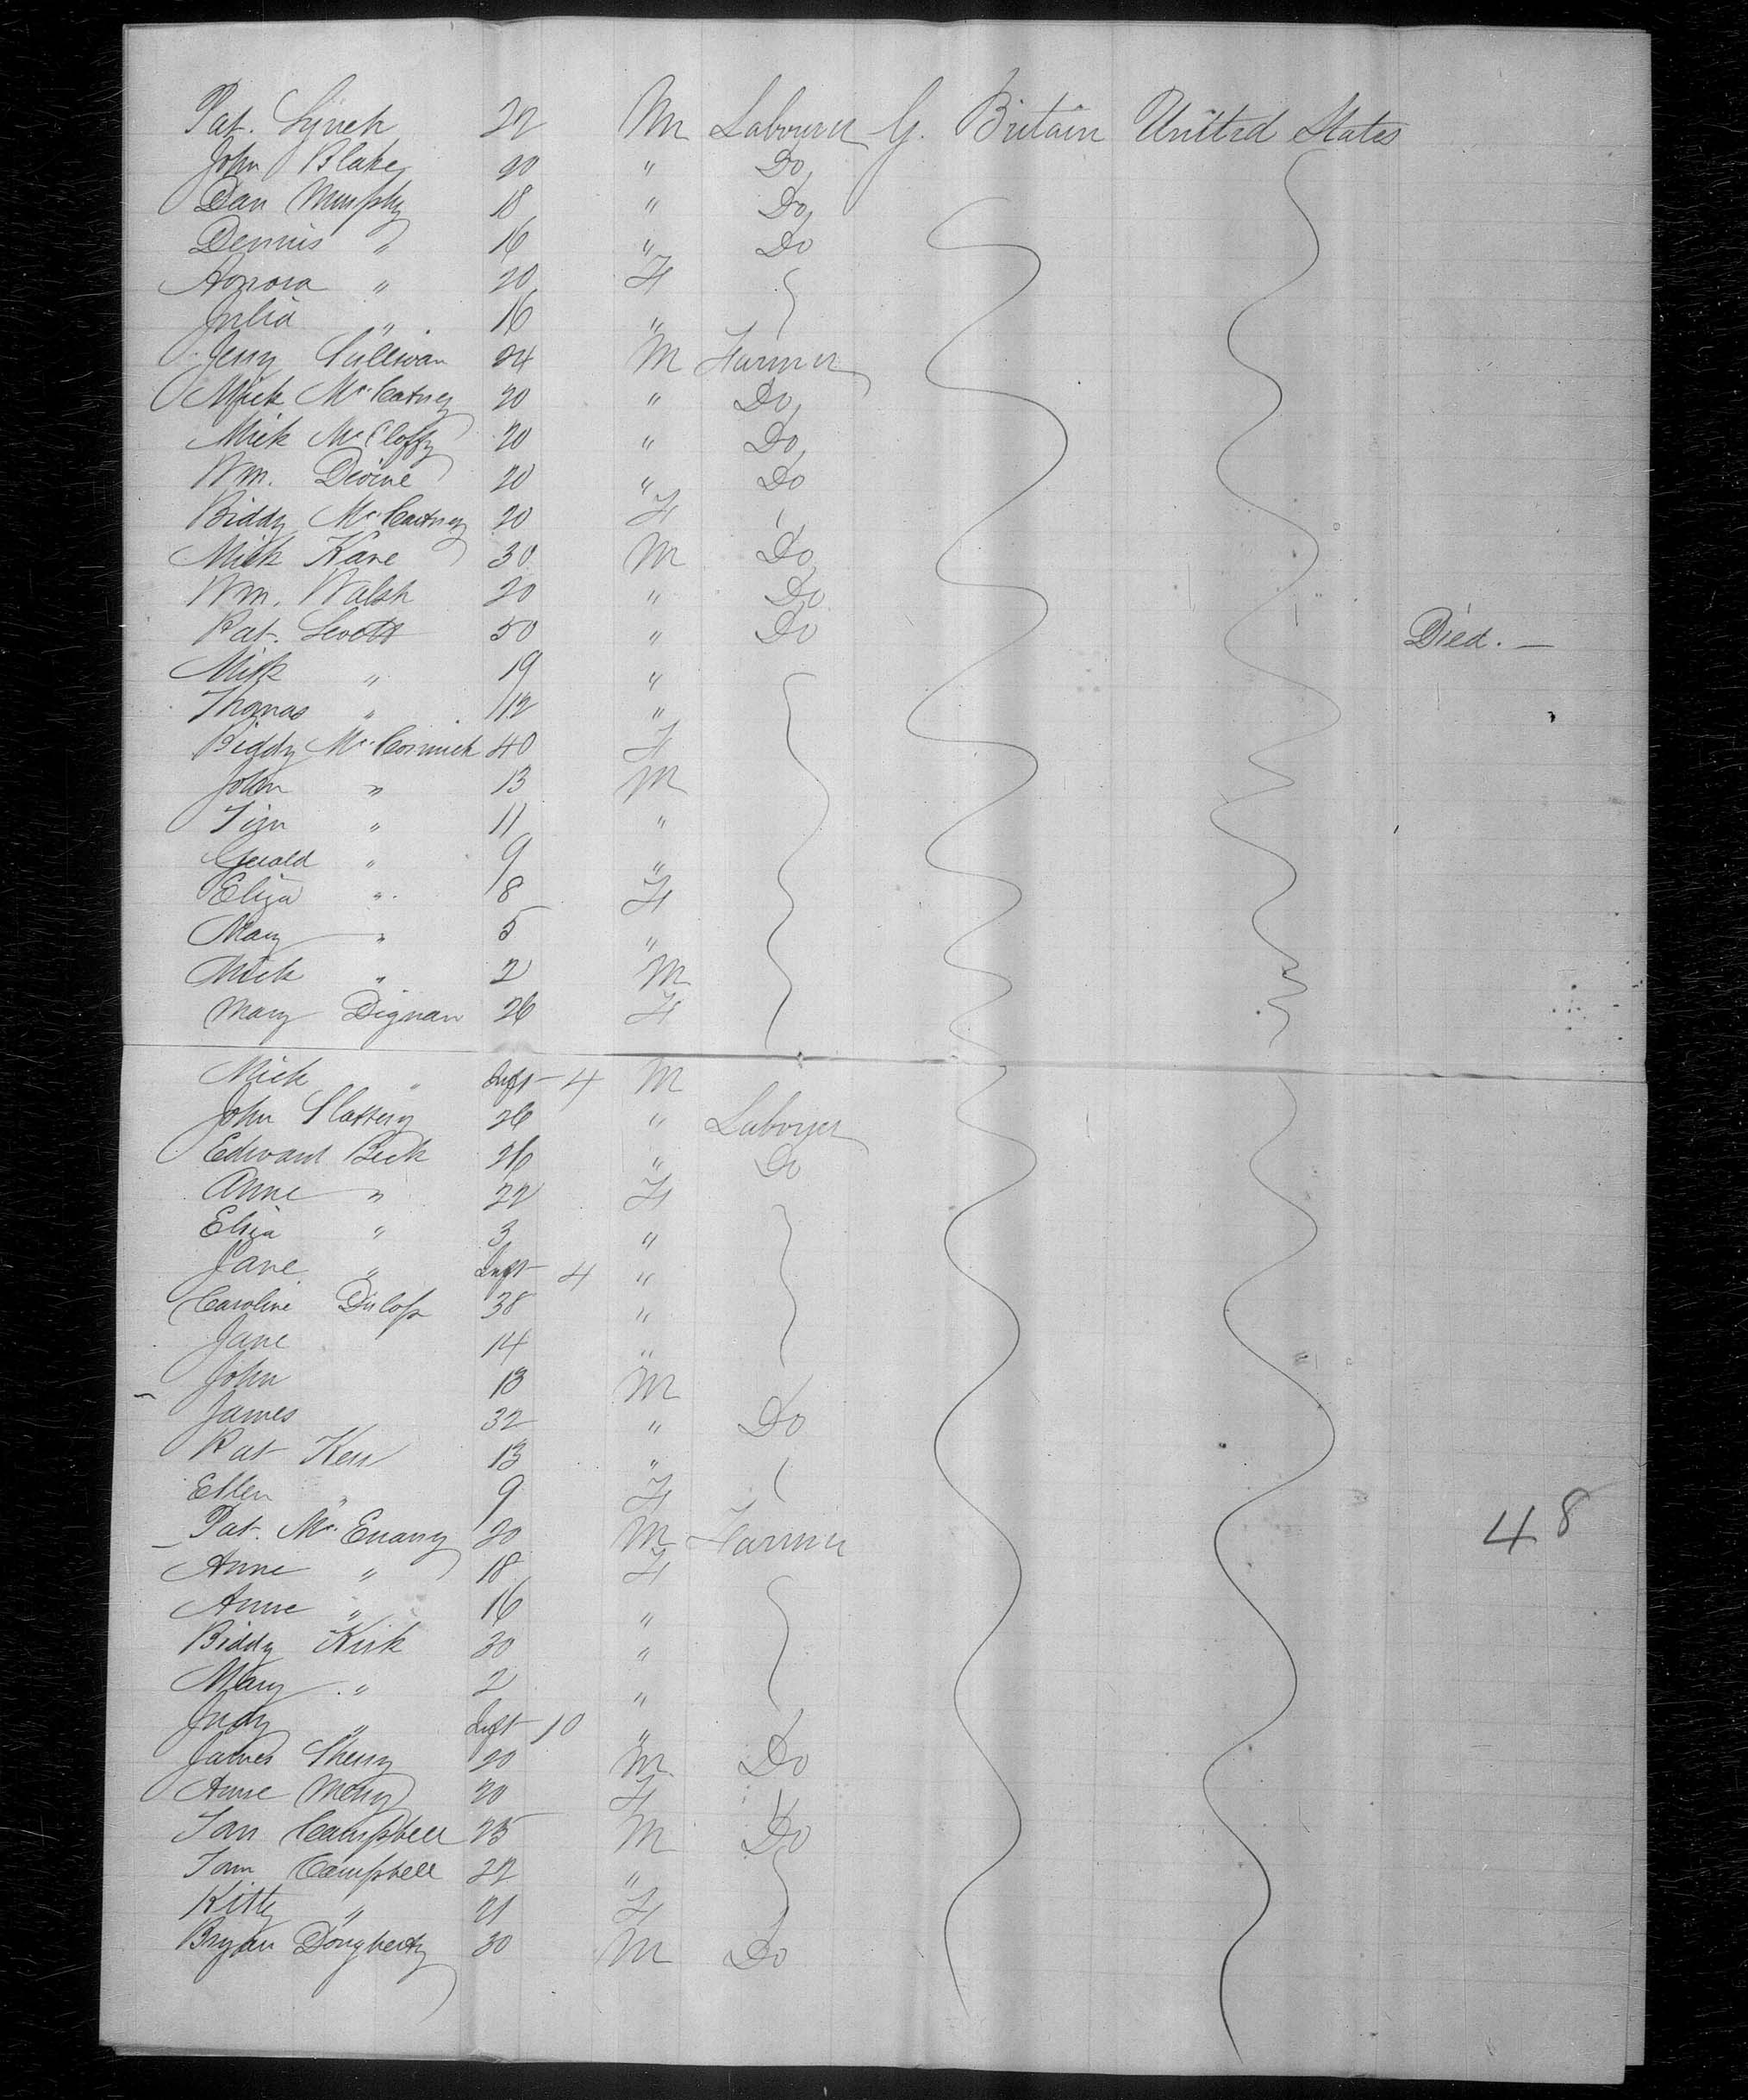 Pat. Lynch 22 M Labourer G. Britain United States
John Blake 20 " Do
Dan Murphy 18 " Do
Dennis " 16 " Do
Honora " 20 F
Julia " 16 "
Jerry Sullivan 24 M Farmer
Mick McCartney 20 " Do
Mick McCloffy 20 " Do
Wm. Devine 20 " Do
Biddy McCartney 20 F
Mick Kane 30 M Do
Wm. Walsh 20 " Do
Pat. 50 " Do Died. —
Mick " 19 "
Thomas " 12 "
Biddy McCormick 40 F
John " 13 M
Tim " 11 "
Gerald " 9 "
Eliza " 8 F
Mary " 5 "
Mick " 2 M
Mary Dignan 26 F
Mick " Inft 4 M
John Slattery 26 " Labourer
Edward Beck 26 " Do
Anne " 22 F
Eliza " 3 "
Jane " Inft 4 "
Caroline 38 "
Jane 14 "
John 13 M
James 32 " Do
Pat Kerr 13 "
Ellen " 9 F
Pat. McEnany 20 M Farmer 48
Anne " 18 F
Anne " 16 "
Biddy Kirk 30 "
Mary " 2 "
Judy " Inft 10 "
James Sherry 20 M Do
Anne Merry 20 F
Ian Campbell 25 M Do
Tom Campbell 22 "
Kitty " 21 F
Bryan Dougherty 30 M Do